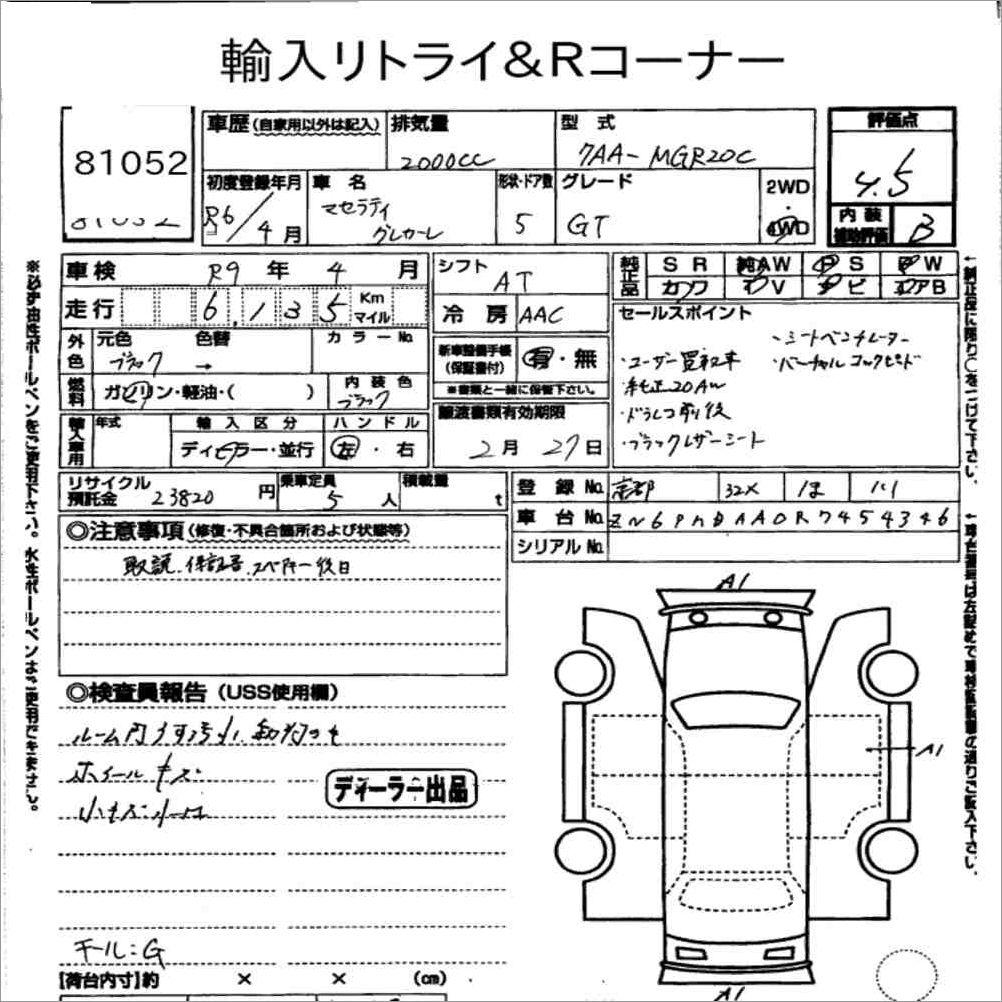 輸入リトライ&Rコーナー
81052
車歴(自家用以外は記入) 排気量 2000cc 型式 7AA-MGR20C
評価点 4.5
内装補助評価 B
初度登録年月 R6/4月
車名 マセラティ グレカーレ
形状・ドア数 5
グレード GT
2WD・4WD
車検 R9年4月
シフト AT
純正品 SR 純AW PS PW
カワ TV ナビ エアB
走行 6,135 Km マイル
冷房 AAC
セールスポイント
・ユーザー買取車
・純正20AW
・ドラレコ前後
・ブラックレザーシート
・シートベンチレーター
・バーチャルコックピット
外色 元色 ブラック 色替 → カラーNo.
新車整備手帳(保証書付) 有・無
※書類と一緒に保管下さい。
燃料 ガソリン・軽油・( ) 内装色 ブラック
譲渡書類有効期限 2月27日
輸入車用 年式 輸入区分 ディーラー・並行 ハンドル 左・右
リサイクル預託金 23820円 乗車定員 5人 積載量 t
登録No. 京都 32X ほ
車台No. ZN6PMDAA0R7454346
シリアルNo.
◎注意事項(修復・不具合箇所および状態等)
取説、保証書、スペアキー後日
◎検査員報告(USS使用欄)
ホイールキズ
ディーラー出品
モール:G
【荷台内寸】約 × × (cm)
A1
A1
A1
※必ず油性ボールペンをご使用下さい。水性ボールペンはご使用できません。
↑純正品に限り○をつけて下さい。